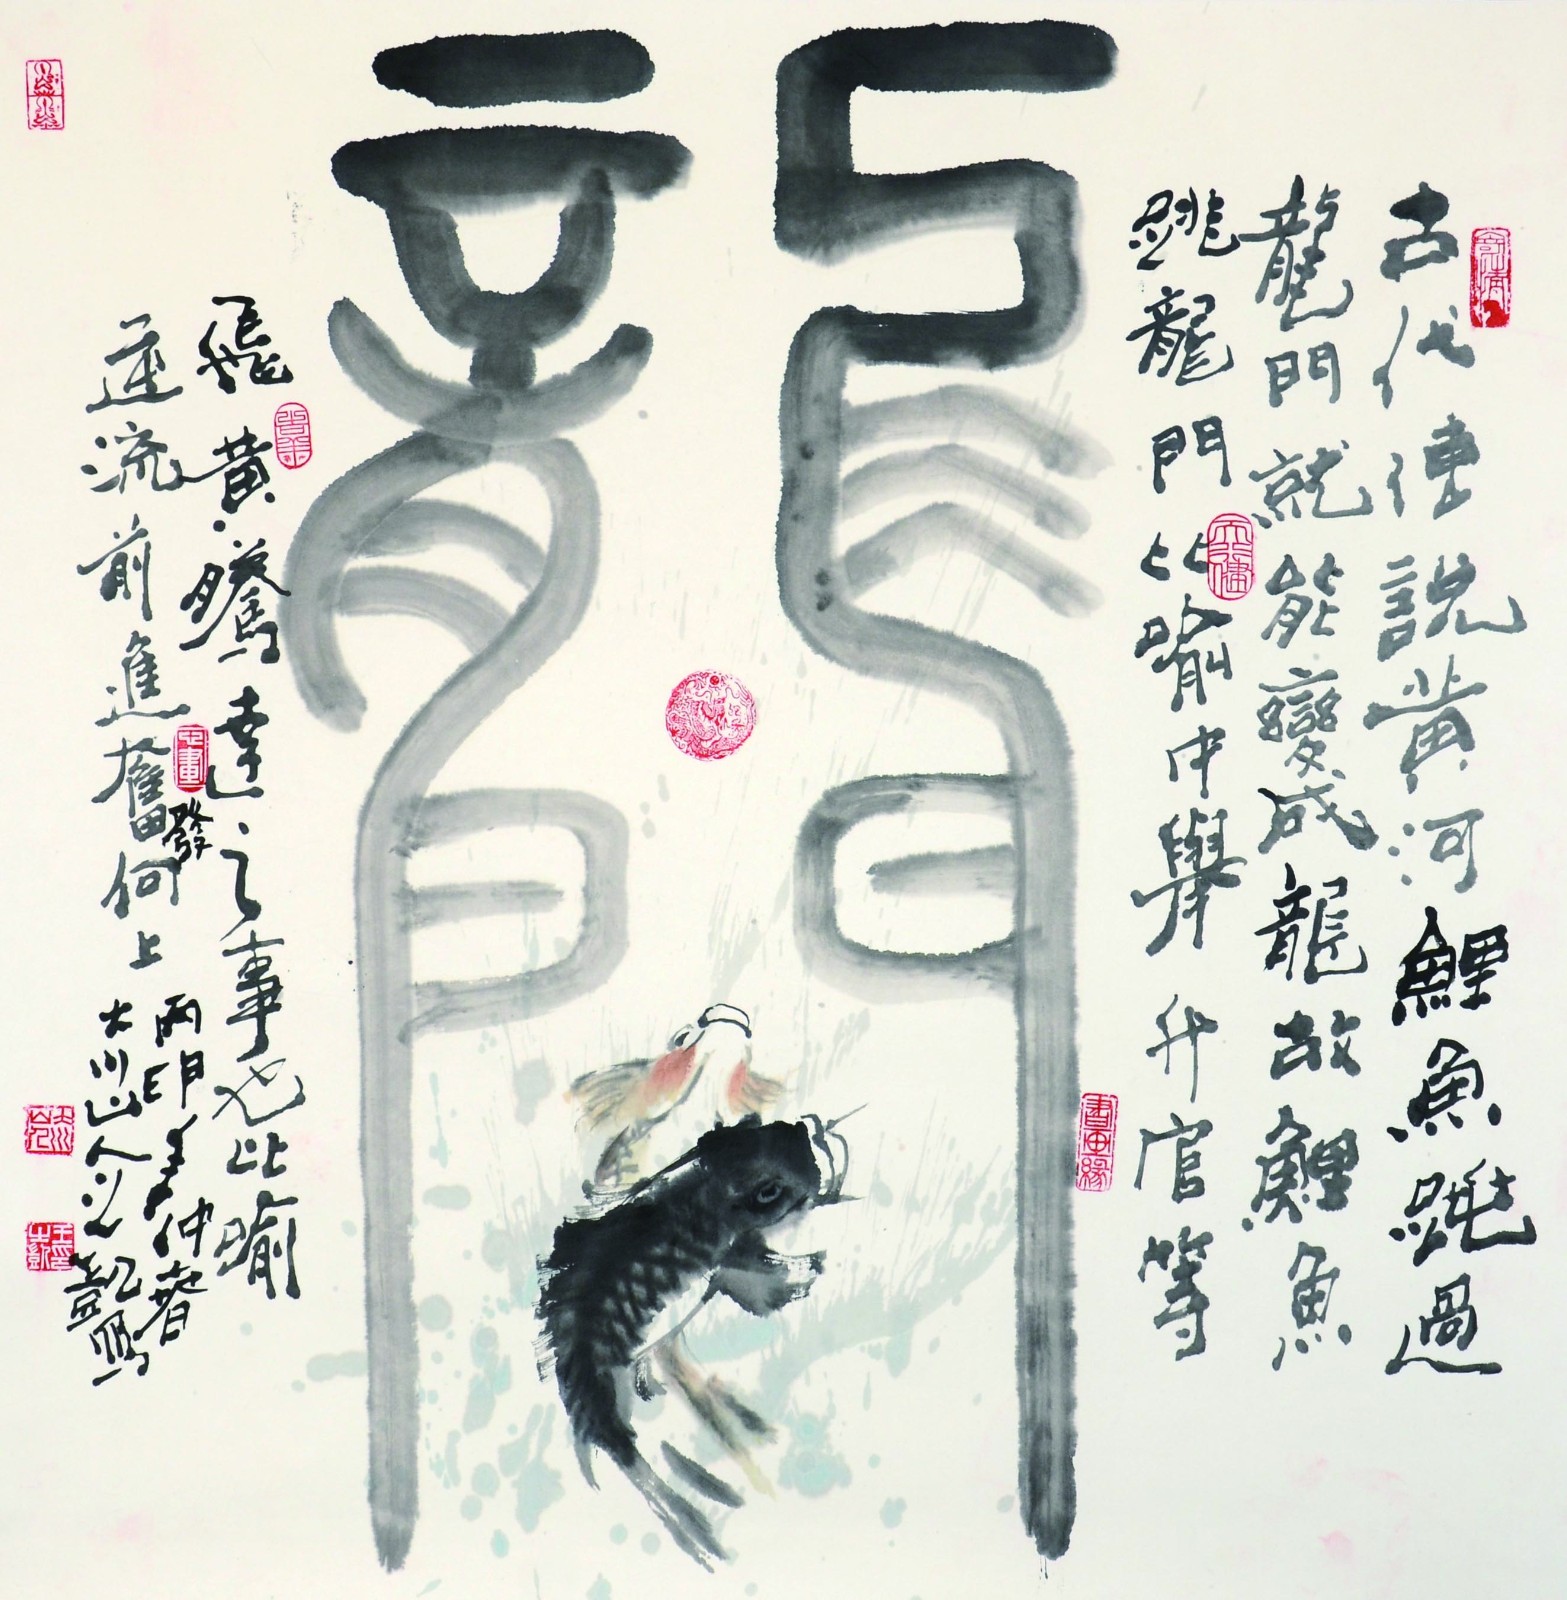 古代傳說黃河鯉魚跳過
龍門就能變成龍故鯉魚
跳龍門比喻中舉升官等
龍門
飛黃騰達之事也比喻
逆流前進奮發何上
年仲春
大川山人